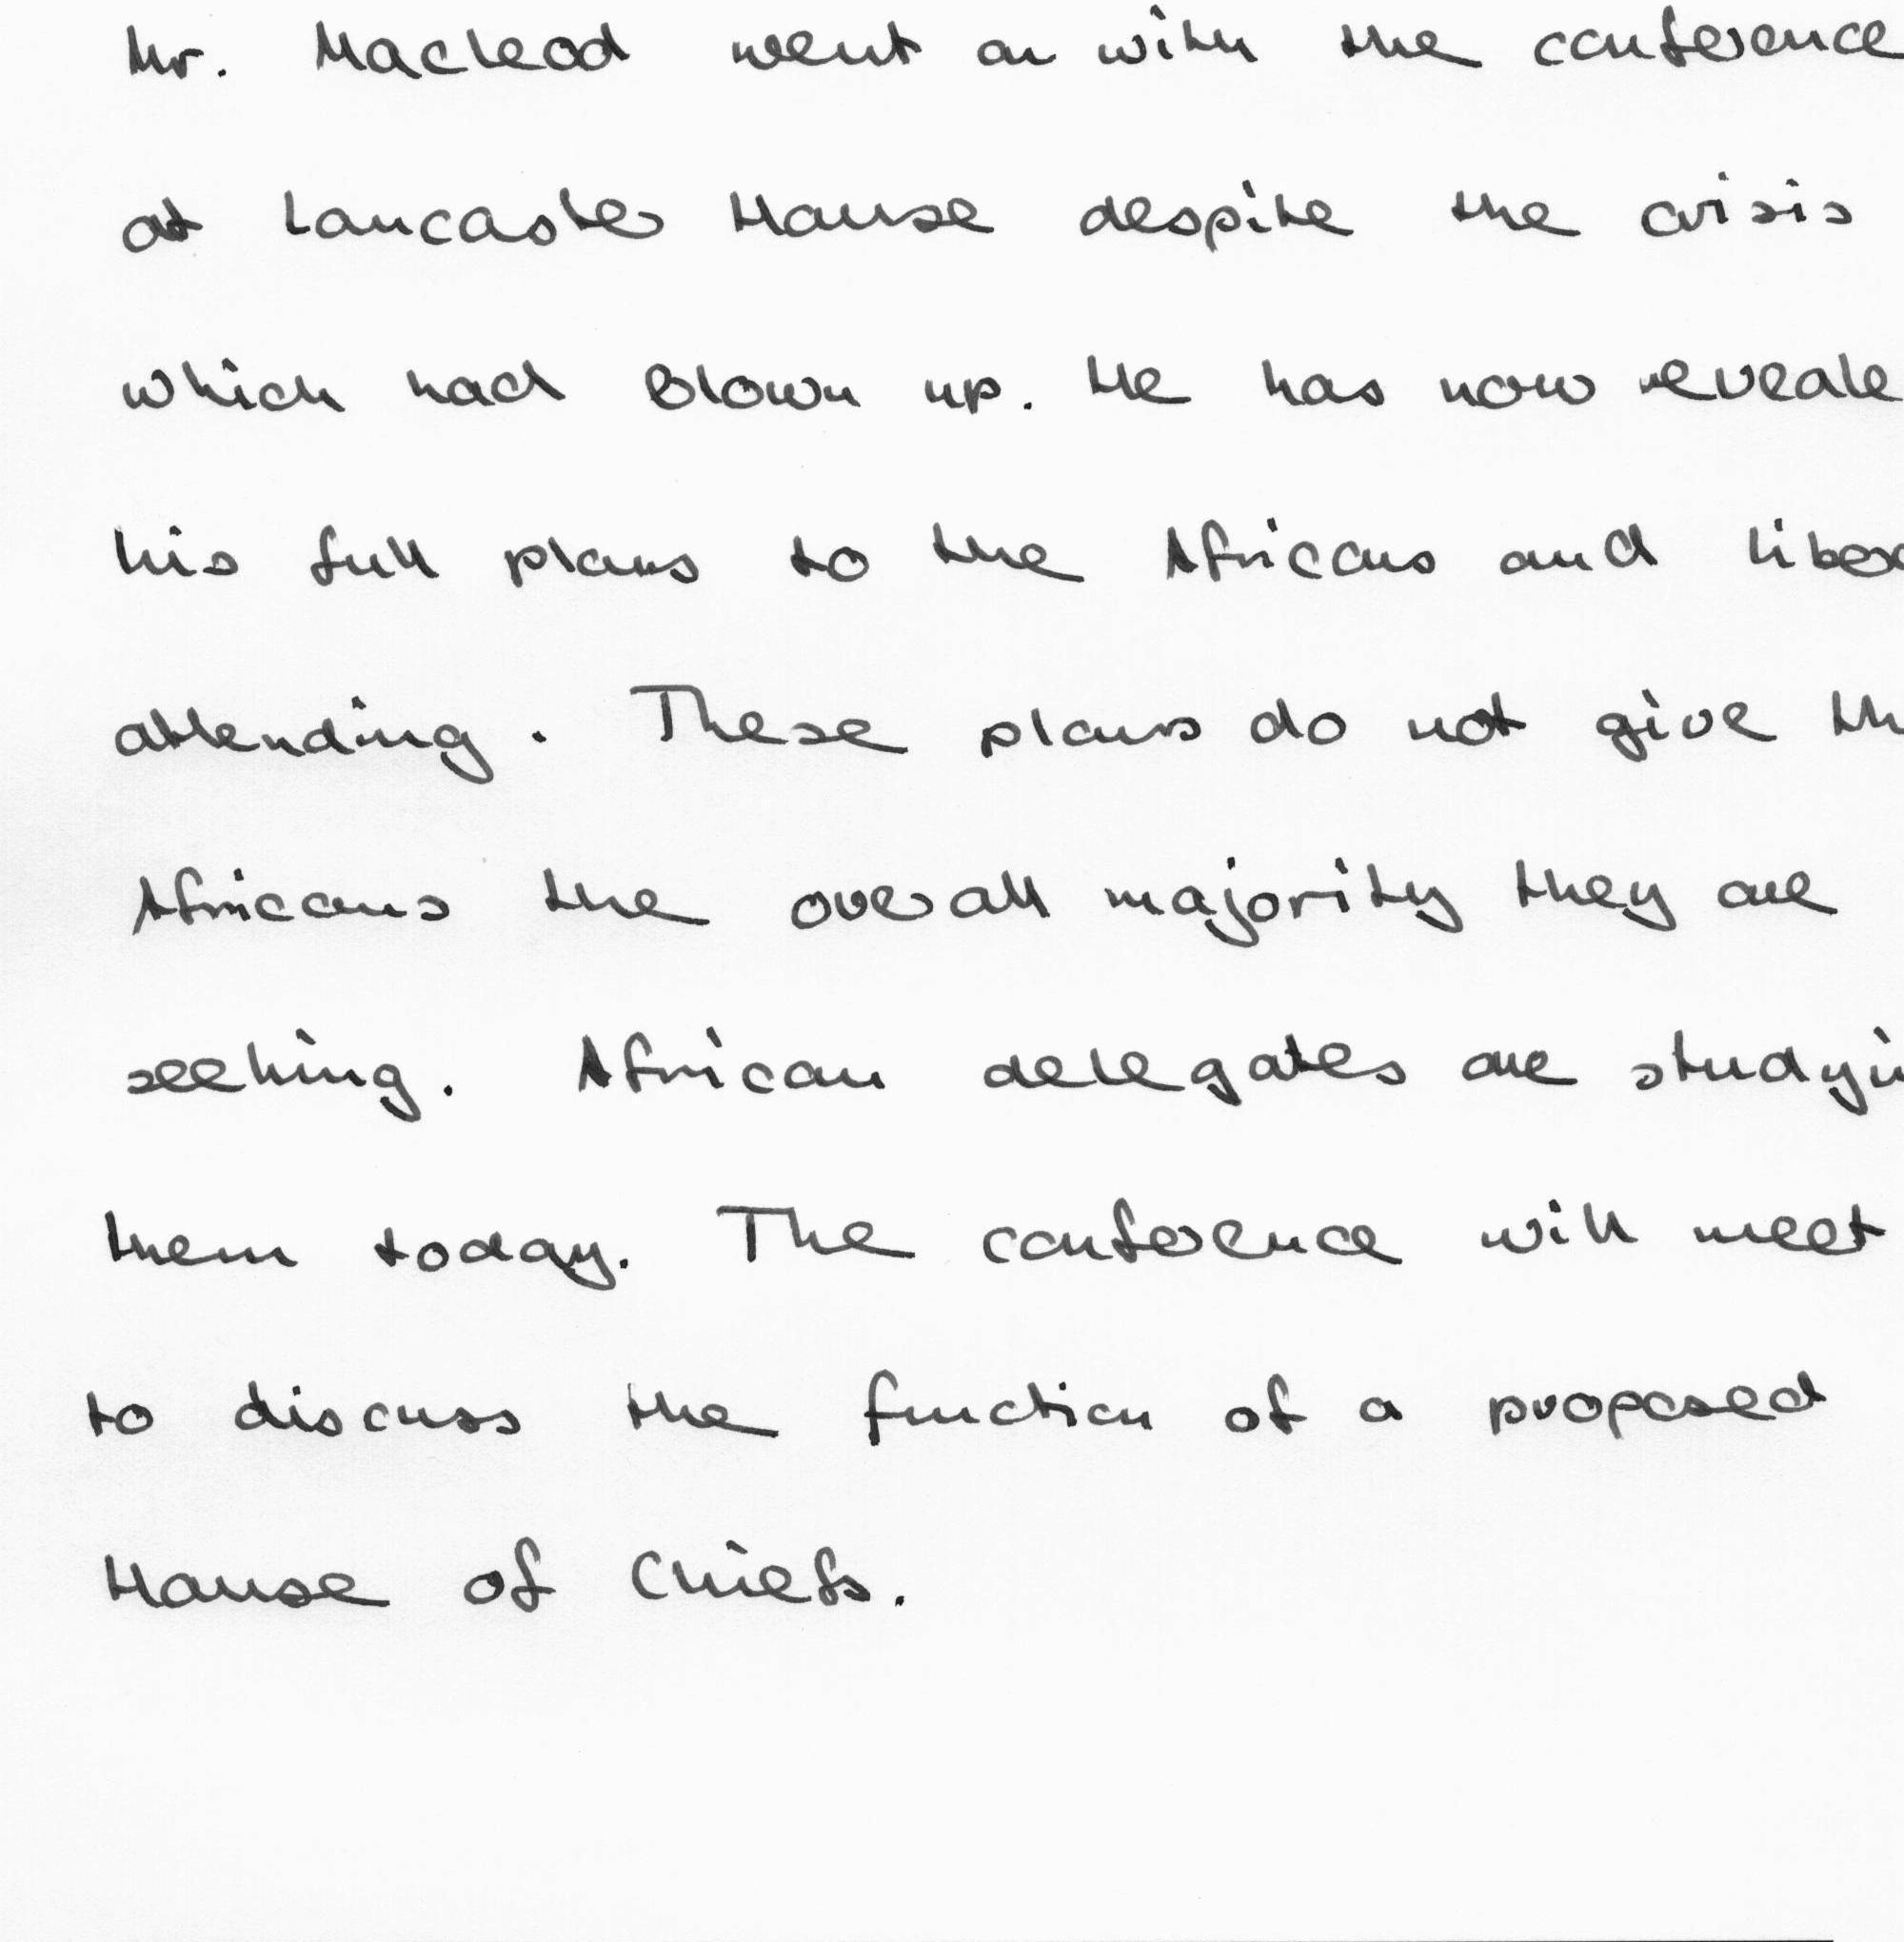 Mr. Macleod went on with the conference
at Lancaster House despite the crisis
which had blown up. He has now reveale
his full plans to the Africans and
attending. These plans do not give
Africans the overall majority they are
seeking. African delegates are
them today. The conference will meet
to discuss the function of a proposed
House of Chiefs.